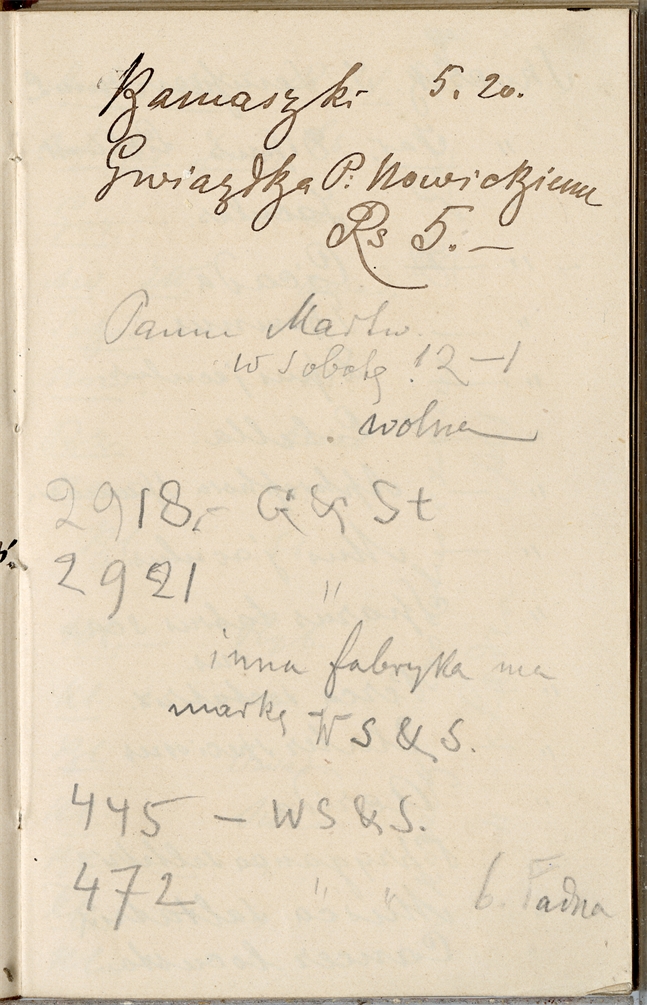 Kamaszki 5.20.
Gwiazdka P. Nowickiemu
Rs 5.—
Panna Marta
w Sobotę 12-1
wolna
2918.- G & St
2921 "
inna fabryka ma
markę W S & S.
445 - WS & S.
472 " " b. Ładna